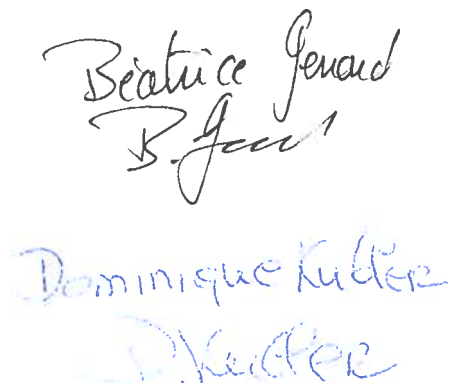 Béatrice Genard
B. Genard
Dominique Kutter
D. Kutter